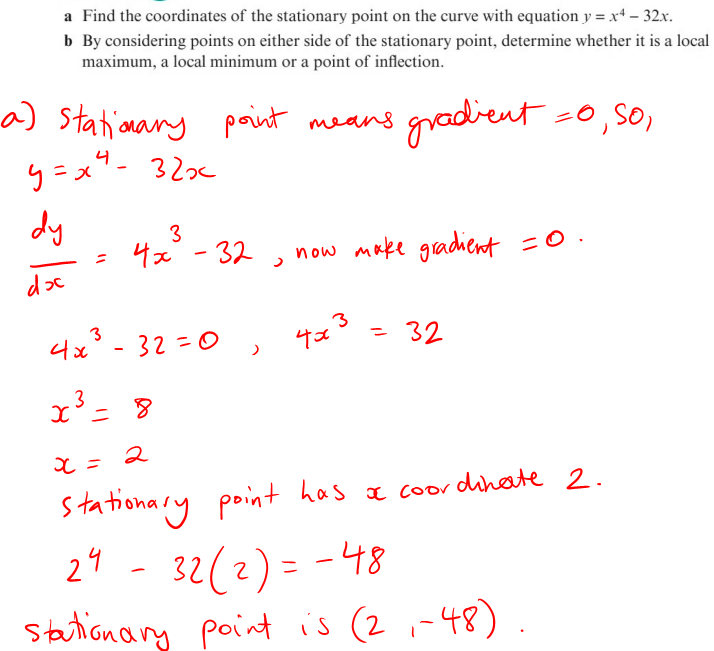 a Find the coordinates of the stationary point on the curve with equation y = x⁴ – 32x.
b By considering points on either side of the stationary point, determine whether it is a local
maximum, a local minimum or a point of inflection.
a) stationary point means gradient =0, so,
y = x⁴ - 32x
dy/dx = 4x³ - 32 , now make gradient = 0 .
4x³ - 32 = 0 , 4x³ = 32
x³ = 8
x = 2
stationary point has x coordinate 2.
2⁴ - 32(2) = -48
stationary point is (2 , -48) .